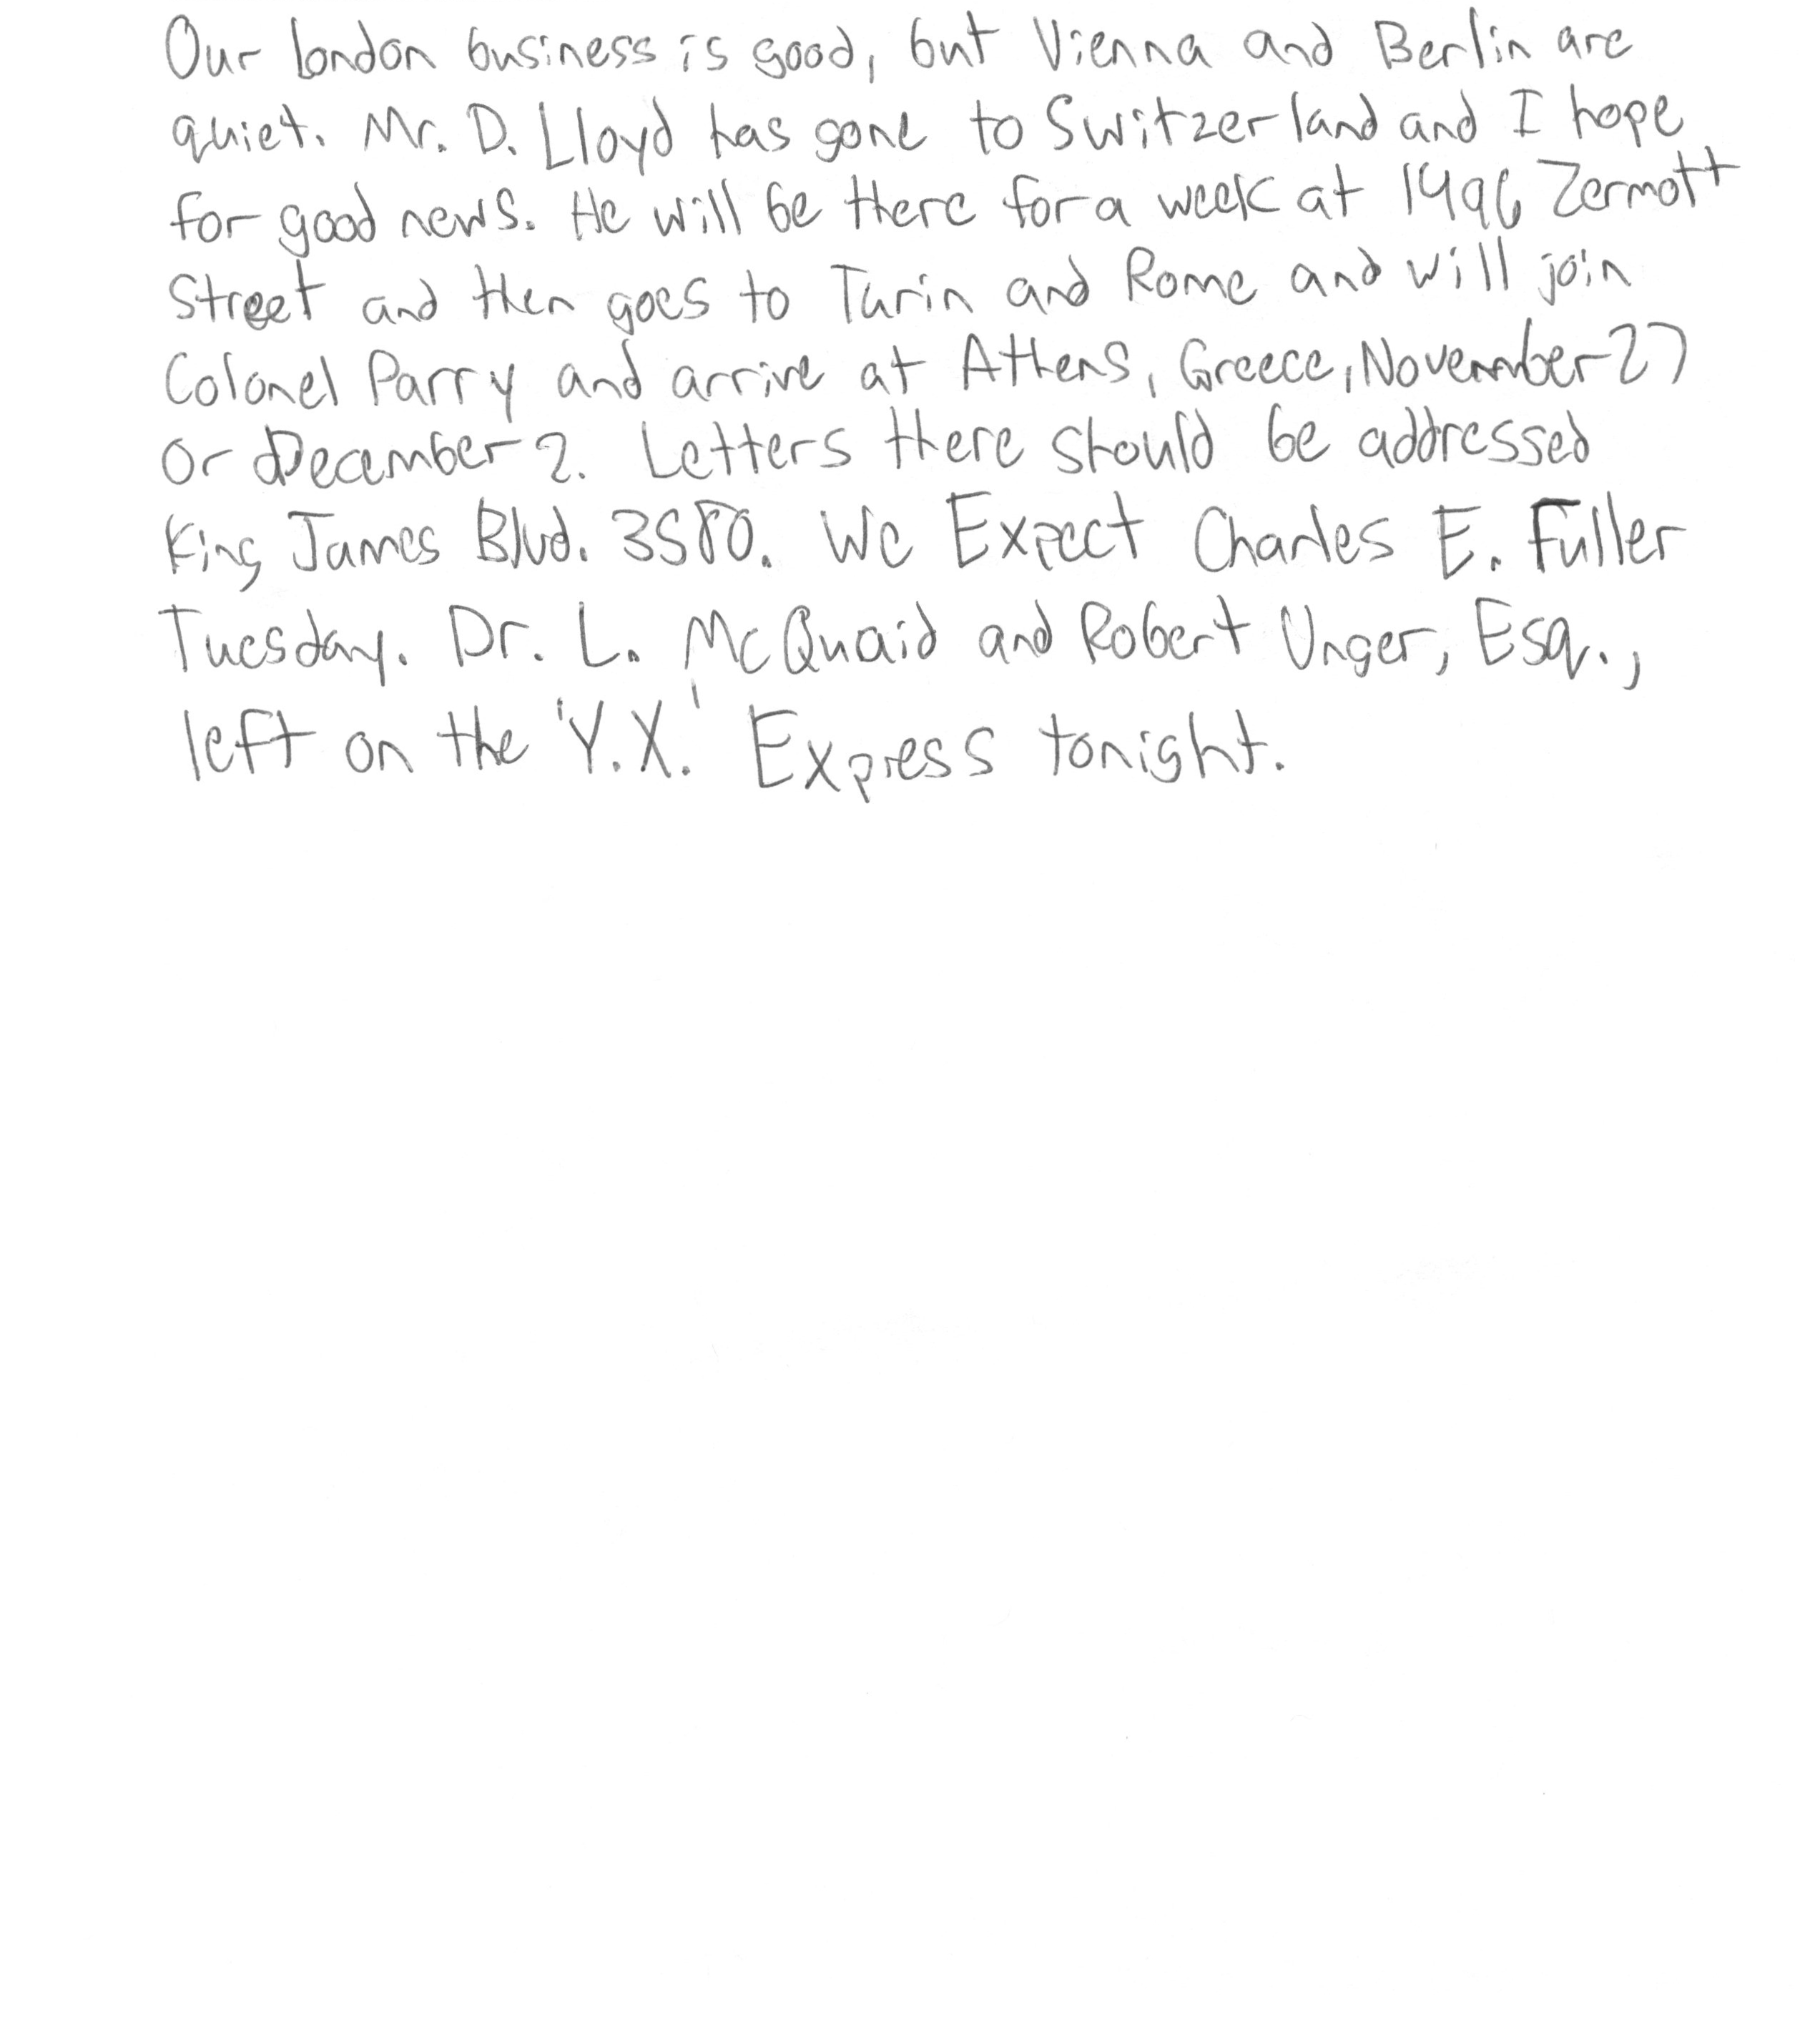 Our London business is good, but Vienna and Berlin are
quiet. Mr. D. Lloyd has gone to Switzerland and I hope
for good news. He will be there for a week at 1496 Zermott
Street and then goes to Turin and Rome and will join
Colonel Parry and arrive at Athens, Greece, November 27
or December 2. Letters there should be addressed
King James Blvd. 3580. We Expect Charles E. Fuller
Tuesday. Dr. L. McQuaid and Robert Unger, Esq.,
left on the 'Y.X.' Express tonight.